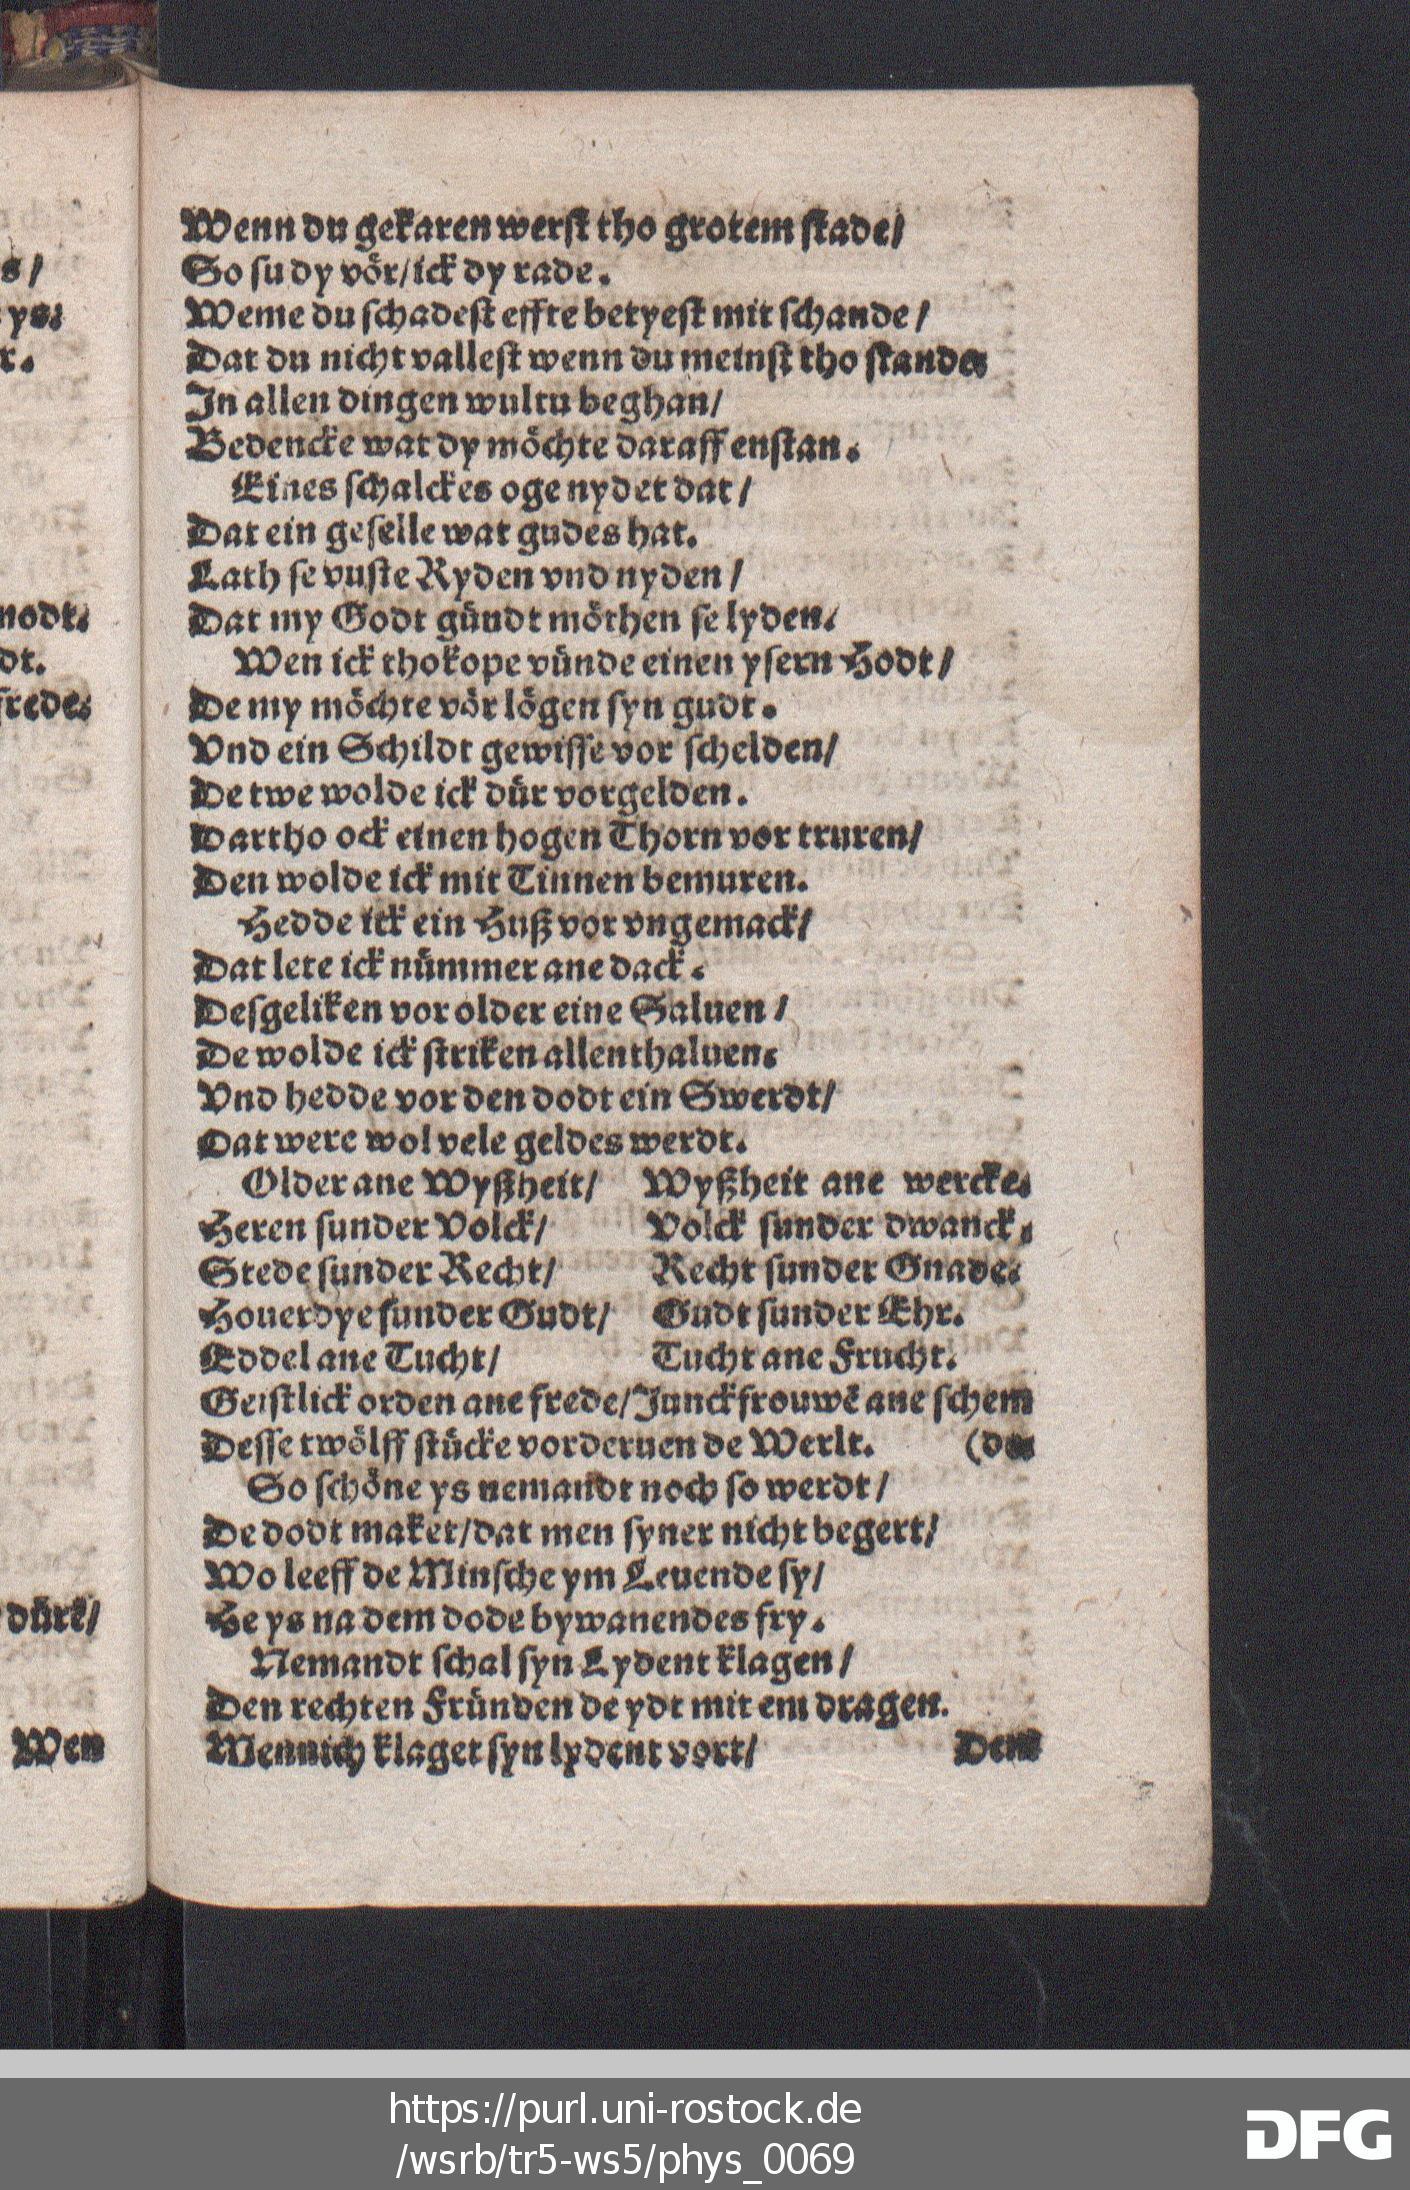 s/
ys.
r.
nodt.
dt.
frede.
dürt/
Wen
Wenn du gekaren werst tho grotem stade/
So su dy vör/ick dy rade.
Weme du schadest effte betyest mit schande/
Dat du nicht vallest wenn du meinst tho stande.
In allen dingen wultu beghan/
Bedencke wat dy möchte daraff enstan.
Eines schalckes oge nydet dat/
Dat ein geselle wat gudes hat.
Lath se vuste Ryden vnd nyden/
Dat my Godt gündt möthen se lyden.
Wen ick thokope vünde einen ysern Hodt/
De my möchte vör lögen syn gudt.
Vnd ein Schildt gewisse vor schelden/
De twe wolde ick dür vorgelden.
Dartho ock einen hogen Thorn vor truren/
Den wolde ick mit Tinnen bemuren.
Hedde ick ein Huß vor vngemack/
Dat lete ick nümmer ane dack.
Desgeliken vor older eine Saluen/
De wolde ick striken allenthaluen.
Vnd hedde vor den dodt ein Swerdt/
Dat were wol vele geldes werdt.
Older ane Wyßheit/ Wyßheit ane wercke.
Heren sunder Volck/ Volck sunder dwanck.
Stede sunder Recht/ Recht sunder Gnade.
Houerdye sunder Gudt/ Gudt sunder Ehr.
Eddel ane Tucht/ Tucht ane Frucht.
Geistlick orden ane frede/Junckfrouwē ane schem
Desse twölff stücke vorderuen de Werlt.
So schöne ys nemandt noch so werdt/
De dodt maket/dat men syner nicht begert/
Wo leeff de Minsche ym Leuende sy/
He ys na dem dode bywanendes fry.
Nemandt schal syn Lydent klagen/
Den rechten Fründen de ydt mit em dragen.
Mennich klaget syn lydent vort/
Dem
https://purl.uni-rostock.de
/wsrb/tr5-ws5/phys_0069
DFG